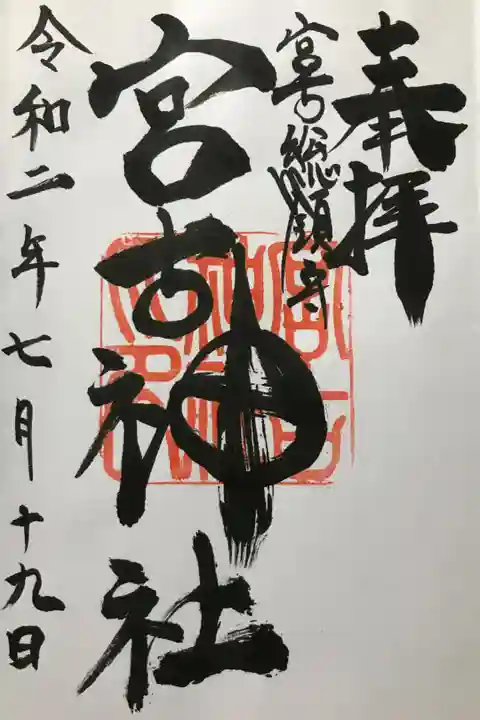 奉拝
宮古総鎮守
宮古神社
令和二年七月十九日